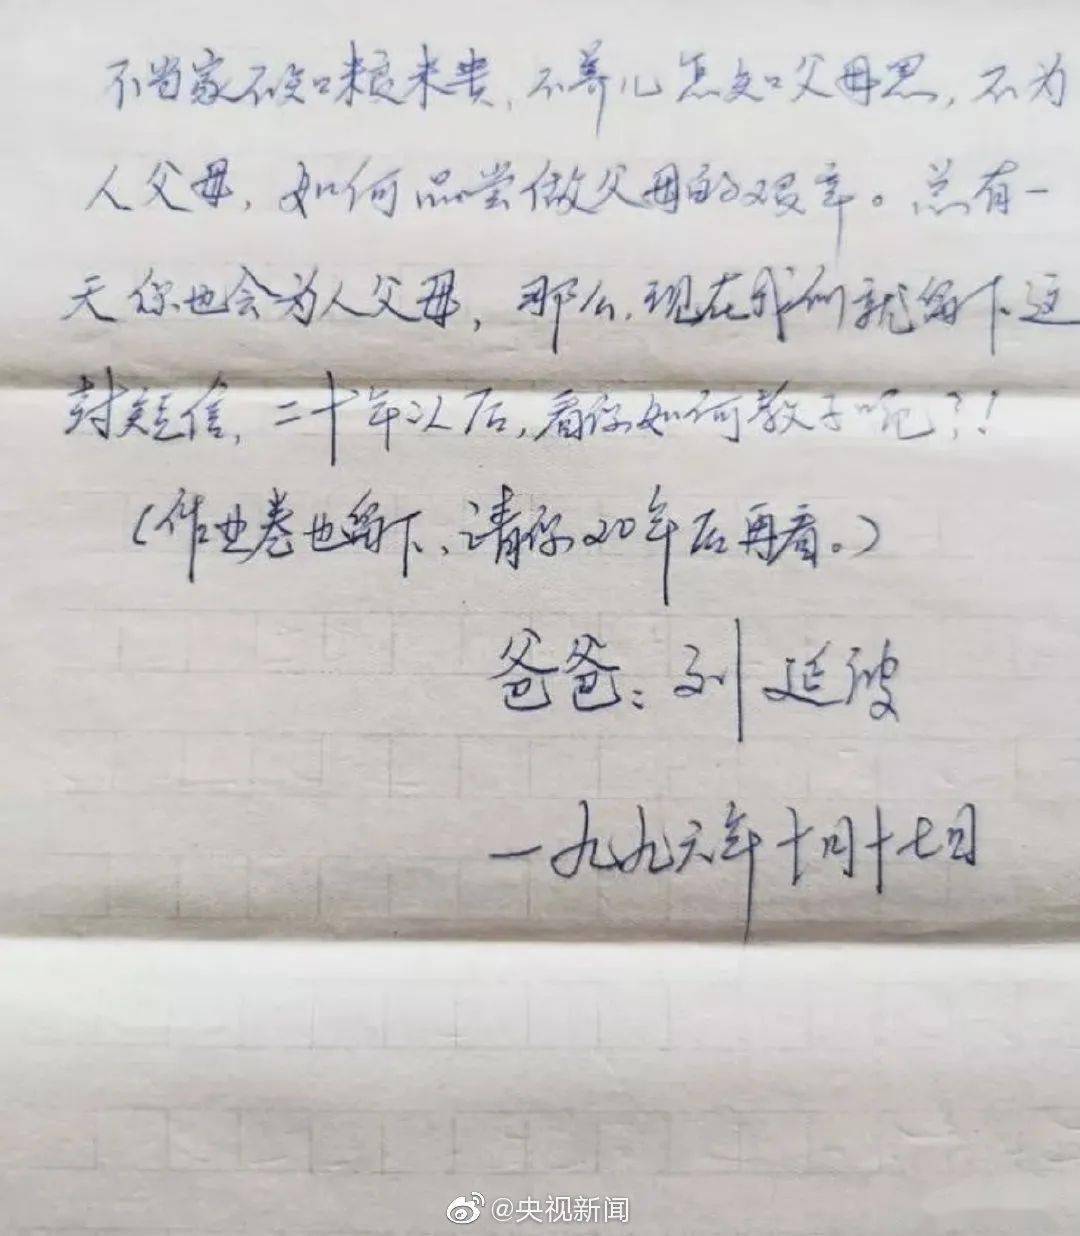 不当家不知粮米贵，不养儿怎知父母恩，不为
人父母，如何品尝做父母的艰辛。总有一
天你也会为人父母，那么，现在我们就留下这
封短信，二十年以后，看你如何教子呢？！
（作业卷也留下，请你20年后再看。）
爸爸：刘延波
一九九六年十月十七日
@央视新闻